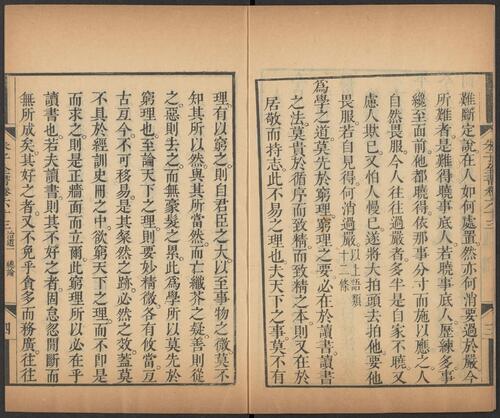 難斷定說在人如何處置然亦何消要過於嚴今
所難者是難得曉事底人若曉事底人歷練多事
纔至面前他都曉得依那事分寸而施以應之人
自然畏服今人往往過嚴者多半是自家不曉又
慮人欺已又怕人慢已遂將大拍頭去拍他要他
畏服若自見得何消過嚴以上語類
十二條
爲學之道莫先於窮理窮理之要必在於讀書讀書
之法莫貴於循序而致精而致精之本則又在於
居敬而持志此不易之理也夫天下之事莫不有
理有以窮之則自君臣之大以至事物之微莫不
知其所以然與其所當然而亡纖芥之疑善則從
之惡則去之而無豪髮之累此爲學所以莫先於
窮理也至論天下之理則要妙精微各有攸當亙
古亙今不可移易是其粲然之跡必然之效蓋莫
不具於經訓史冊之中欲窮天下之理而不卽是
而求之則是正牆面而立爾此窮理所以必在乎
讀書也若夫讀書則其不好之者固怠忽閒斷而
無所成矣其好之者又不免乎貪多而務廣往往
治道一
總論
四